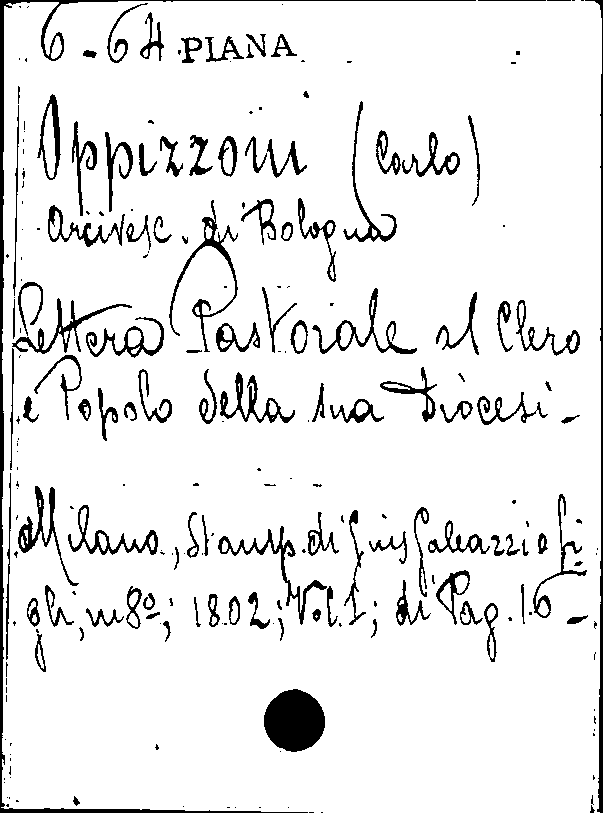 6-64 PIANA
Oppizzoni (Carlo)
Arcivesc. di Bologna
Lettera Pastorale al Clero
e Popolo della sua Diocesi-
Milano, Stamp. di Gius Galeazzi e fi-
gli, in 8º; 1802; Vol. 1; di Pag. 16-